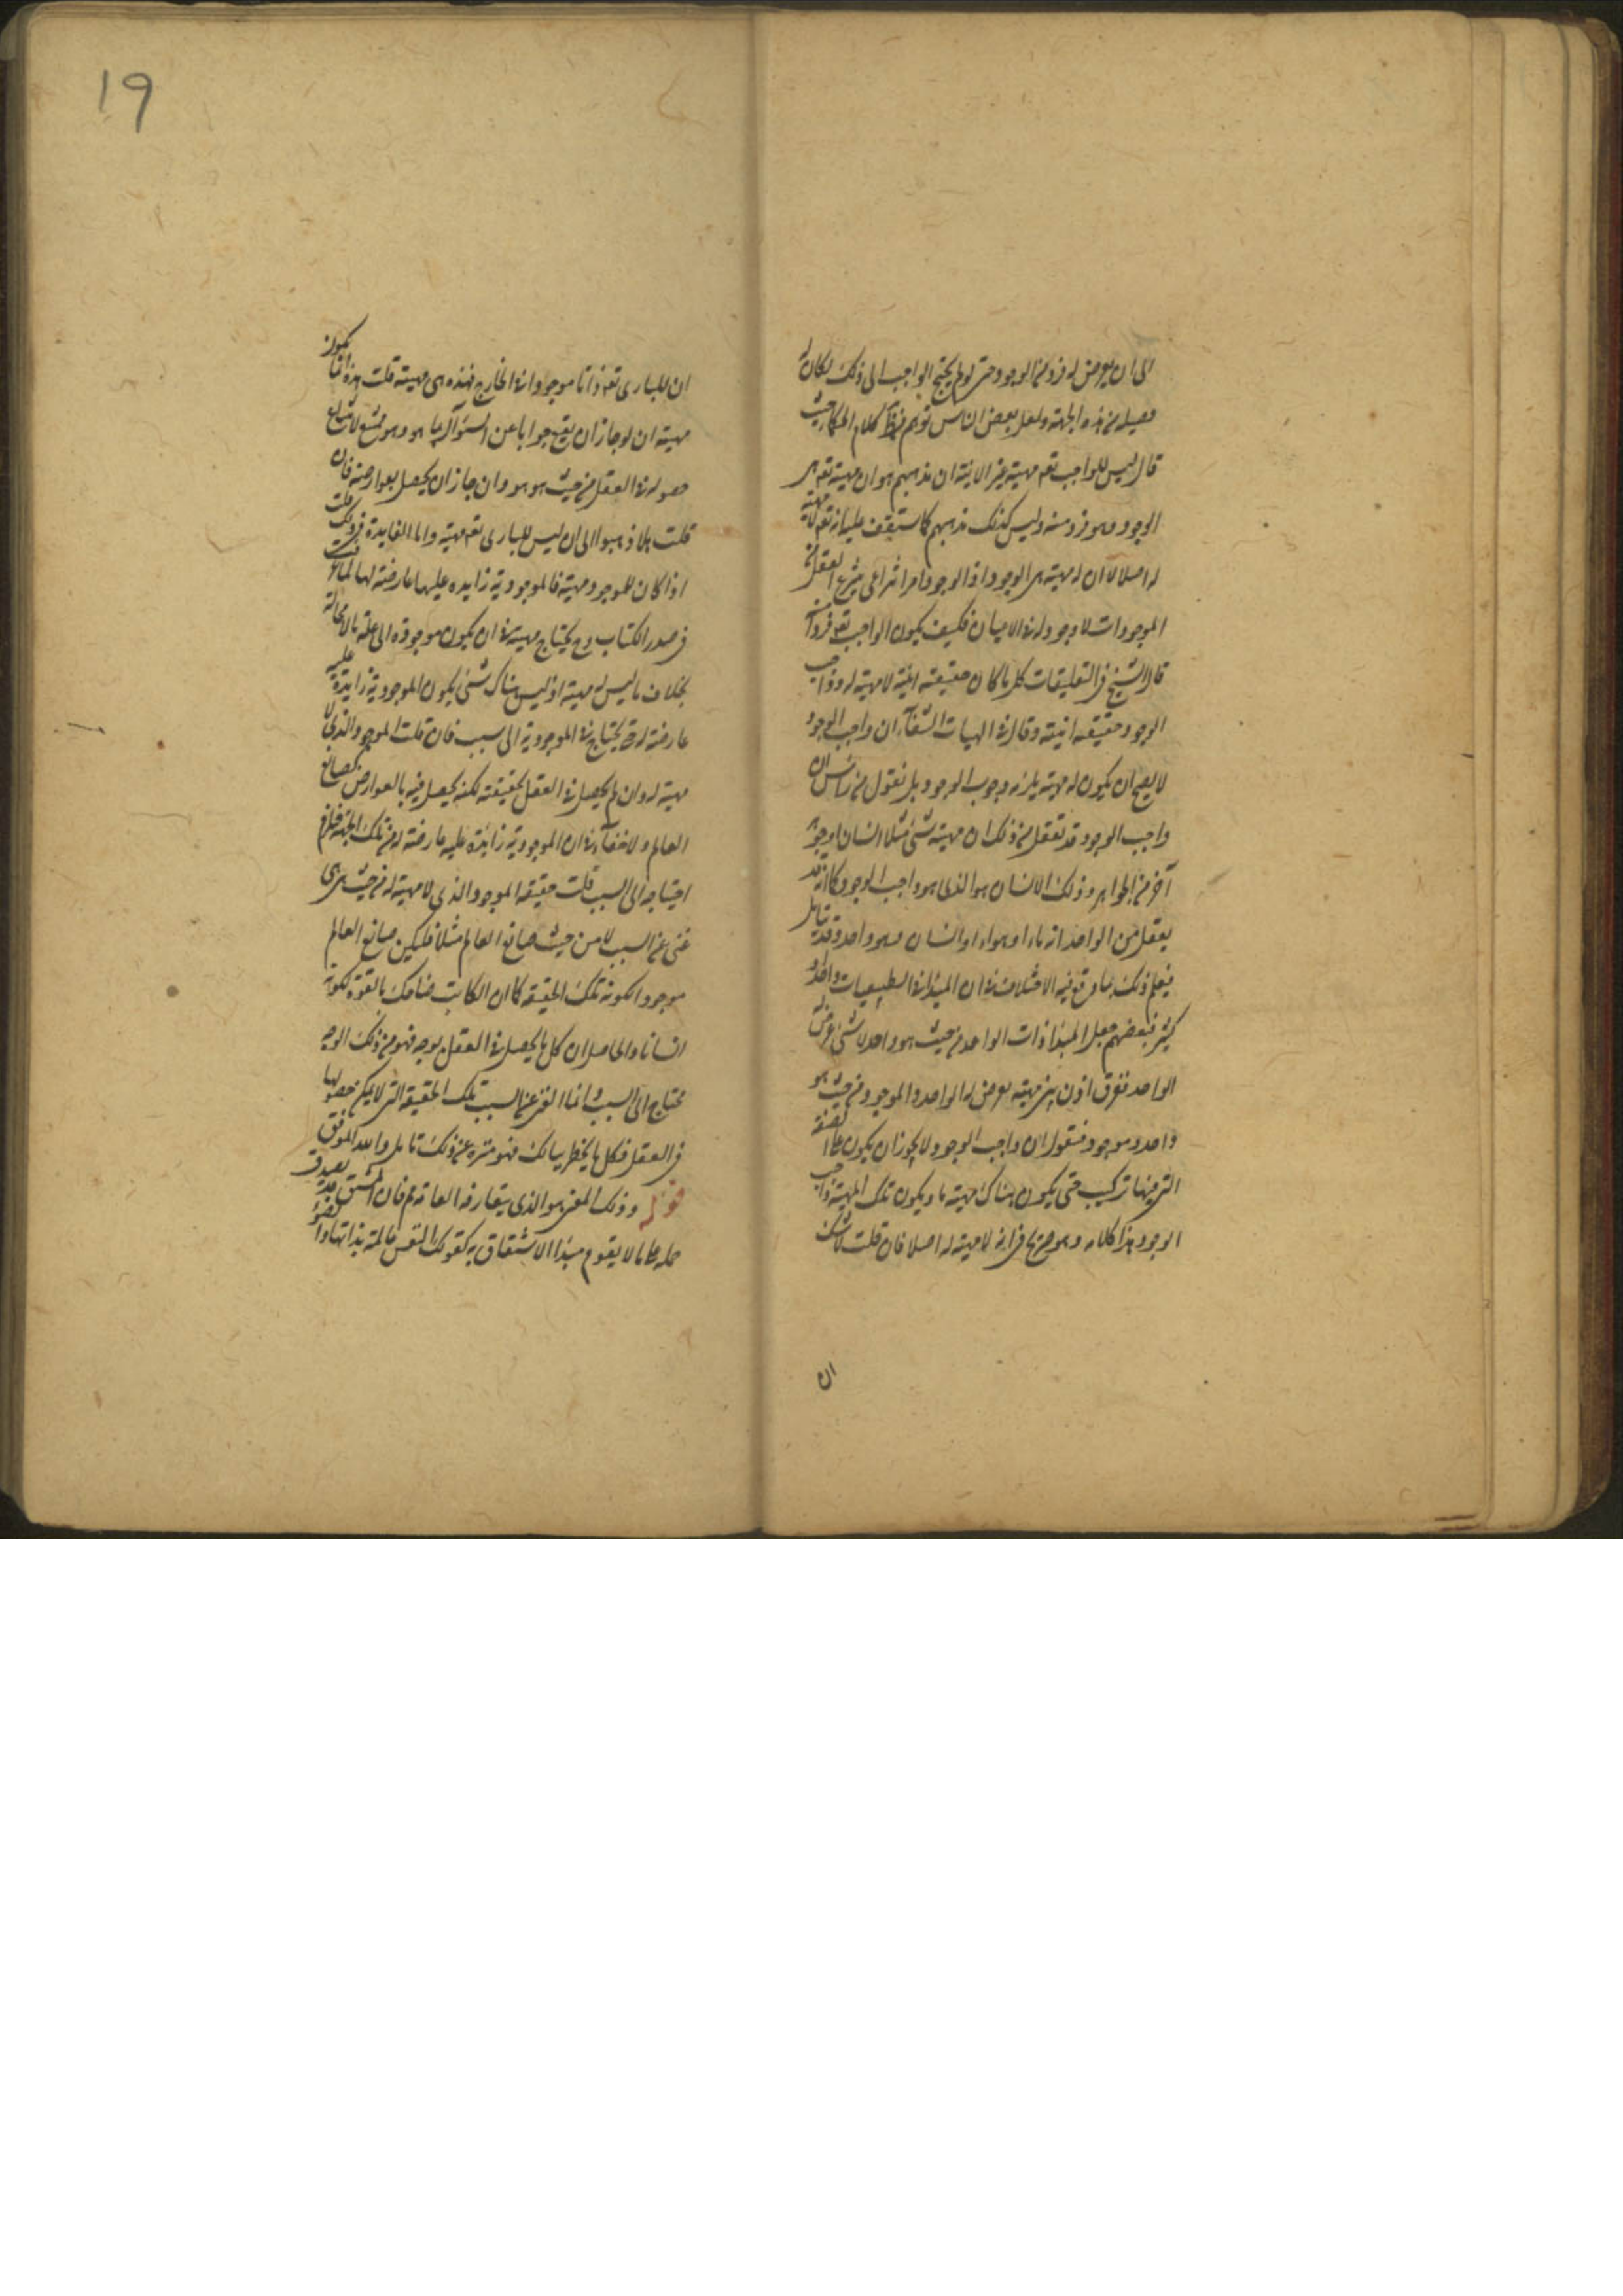 الى ان يعرض له فرد من الوجود حتى لو لم يحتج الواجب الى ذلك لكان له
من هذه الجهة ولعل بعض الناس توهم من كلام الحكماء حيث
قال ليس للواجب تعه مهية غير الانية ان مذهبهم هو ان مهية تعه هي
الوجود وهو فرد منه وليس كذلك مذهبهم كما ستقف عليه انه تعه لا مهية
له اصلا لا ان له مهية هى الوجود اذ الوجود امر انتزاعى ينتزع العقل من
الموجودات لا وجود له فى الاعيان فكيف يكون الواجب تعه فردا منه
قال الشيخ فى التعليقات كل ما كان حقيقته انيته لا مهية له وواجب
الوجود حقيقته انيته وقال فى الهيات الشفآء ان واجب الوجود
لا يصح ان يكون له مهية يلزمه وجوب الوجود بل نقول من رأس ان
واجب الوجود قد تعقل من ذلك ان مهية شئ مثلا انسان او جوهر
آخر من الجواهر وذلك الانسان هو الذى هو واجب الوجود كما انه قد
يعقل من الواحد انه ماء او هواء او انسان وهو واحد وقد تتامل
فيعلم ذلك بما وقع فيه الاختلاف فى ان المبدأ فى الطبيعيات واحد او
كثير فبعضهم جعل المبدأ ذات الواحد من حيث هو واحد لا شئ عرض له
الواحد ففرق اذن بين مهية يعرض لها الواحد والموجود من حيث هو
واحد وموجود فنقول ان واجب الوجود لا يجوز ان يكون على الصفة
التى فيها تركيب حتى يكون هناك مهية ما ويكون تلك المهية واجب
الوجود هذا كلامه وهو صريح فى انه لا مهية له اصلا فان قلت لا شك
ان
19
ان للبارى تعه ذاتا موجودا فى الخارج فهذه هى مهيته قلت هذه انما يكون
مهية ان لو جاز ان يقع جوابا عن السؤال بما هو وهو ممتنع لامتناع
حصوله فى العقل من حيث هو هو وان جاز ان يحصل بعوارضه فان
قلت لم ذهبوا الى ان ليس للبارى تعه مهية واما الفايدة فى ذلك قلت
اذا كان للموجود مهية فالموجودية زايده عليها عارضة لها لما
فى صدر الكتاب وح يحتاج مهيته فى ان يكون موجودة الى علة لا محالة
بخلاف ما ليس له مهية اذ ليس هناك شئ يكون الموجودية زايدة عليه
عارضة له حتى يحتاج فى الموجودية الى سبب فان قلت الموجود الذى لا
مهية له وان لم يحصل فى العقل بحقيقته لكنه يحصل فيه بالعوارض كصانع
العالم ولا خفآء فى ان الموجودية زائدة عليه عارضة له من تلك الجهة فلزم
احتياجه الى السبب قلت حقيقة الموجود الذى لا مهية له من حيث هى هى
غنى عن السبب لا من حيث صانع العالم مثلا فليكن صانع العالم
موجودا لكونه تلك الحقيقة كما ان الكاتب ضاحك بالقوة لكونه
انسانا والحاصل ان كل ما يحصل فى العقل بوجه فهو من ذلك الوجه
محتاج الى السبب وانما الغنى عن السبب تلك الحقيقة التى لا يمكن حصولها
فى العقل فكل ما يخطر ببالك فهو منزه عن ذلك تامل والله الموفق
قوله وذلك المعنى هو الذى يتعارفه العامة فان المشتق قد يصدق
حمله على ما لا يقوم مبدأ الاشتقاق به كقولك النفس عالمة بذاتها